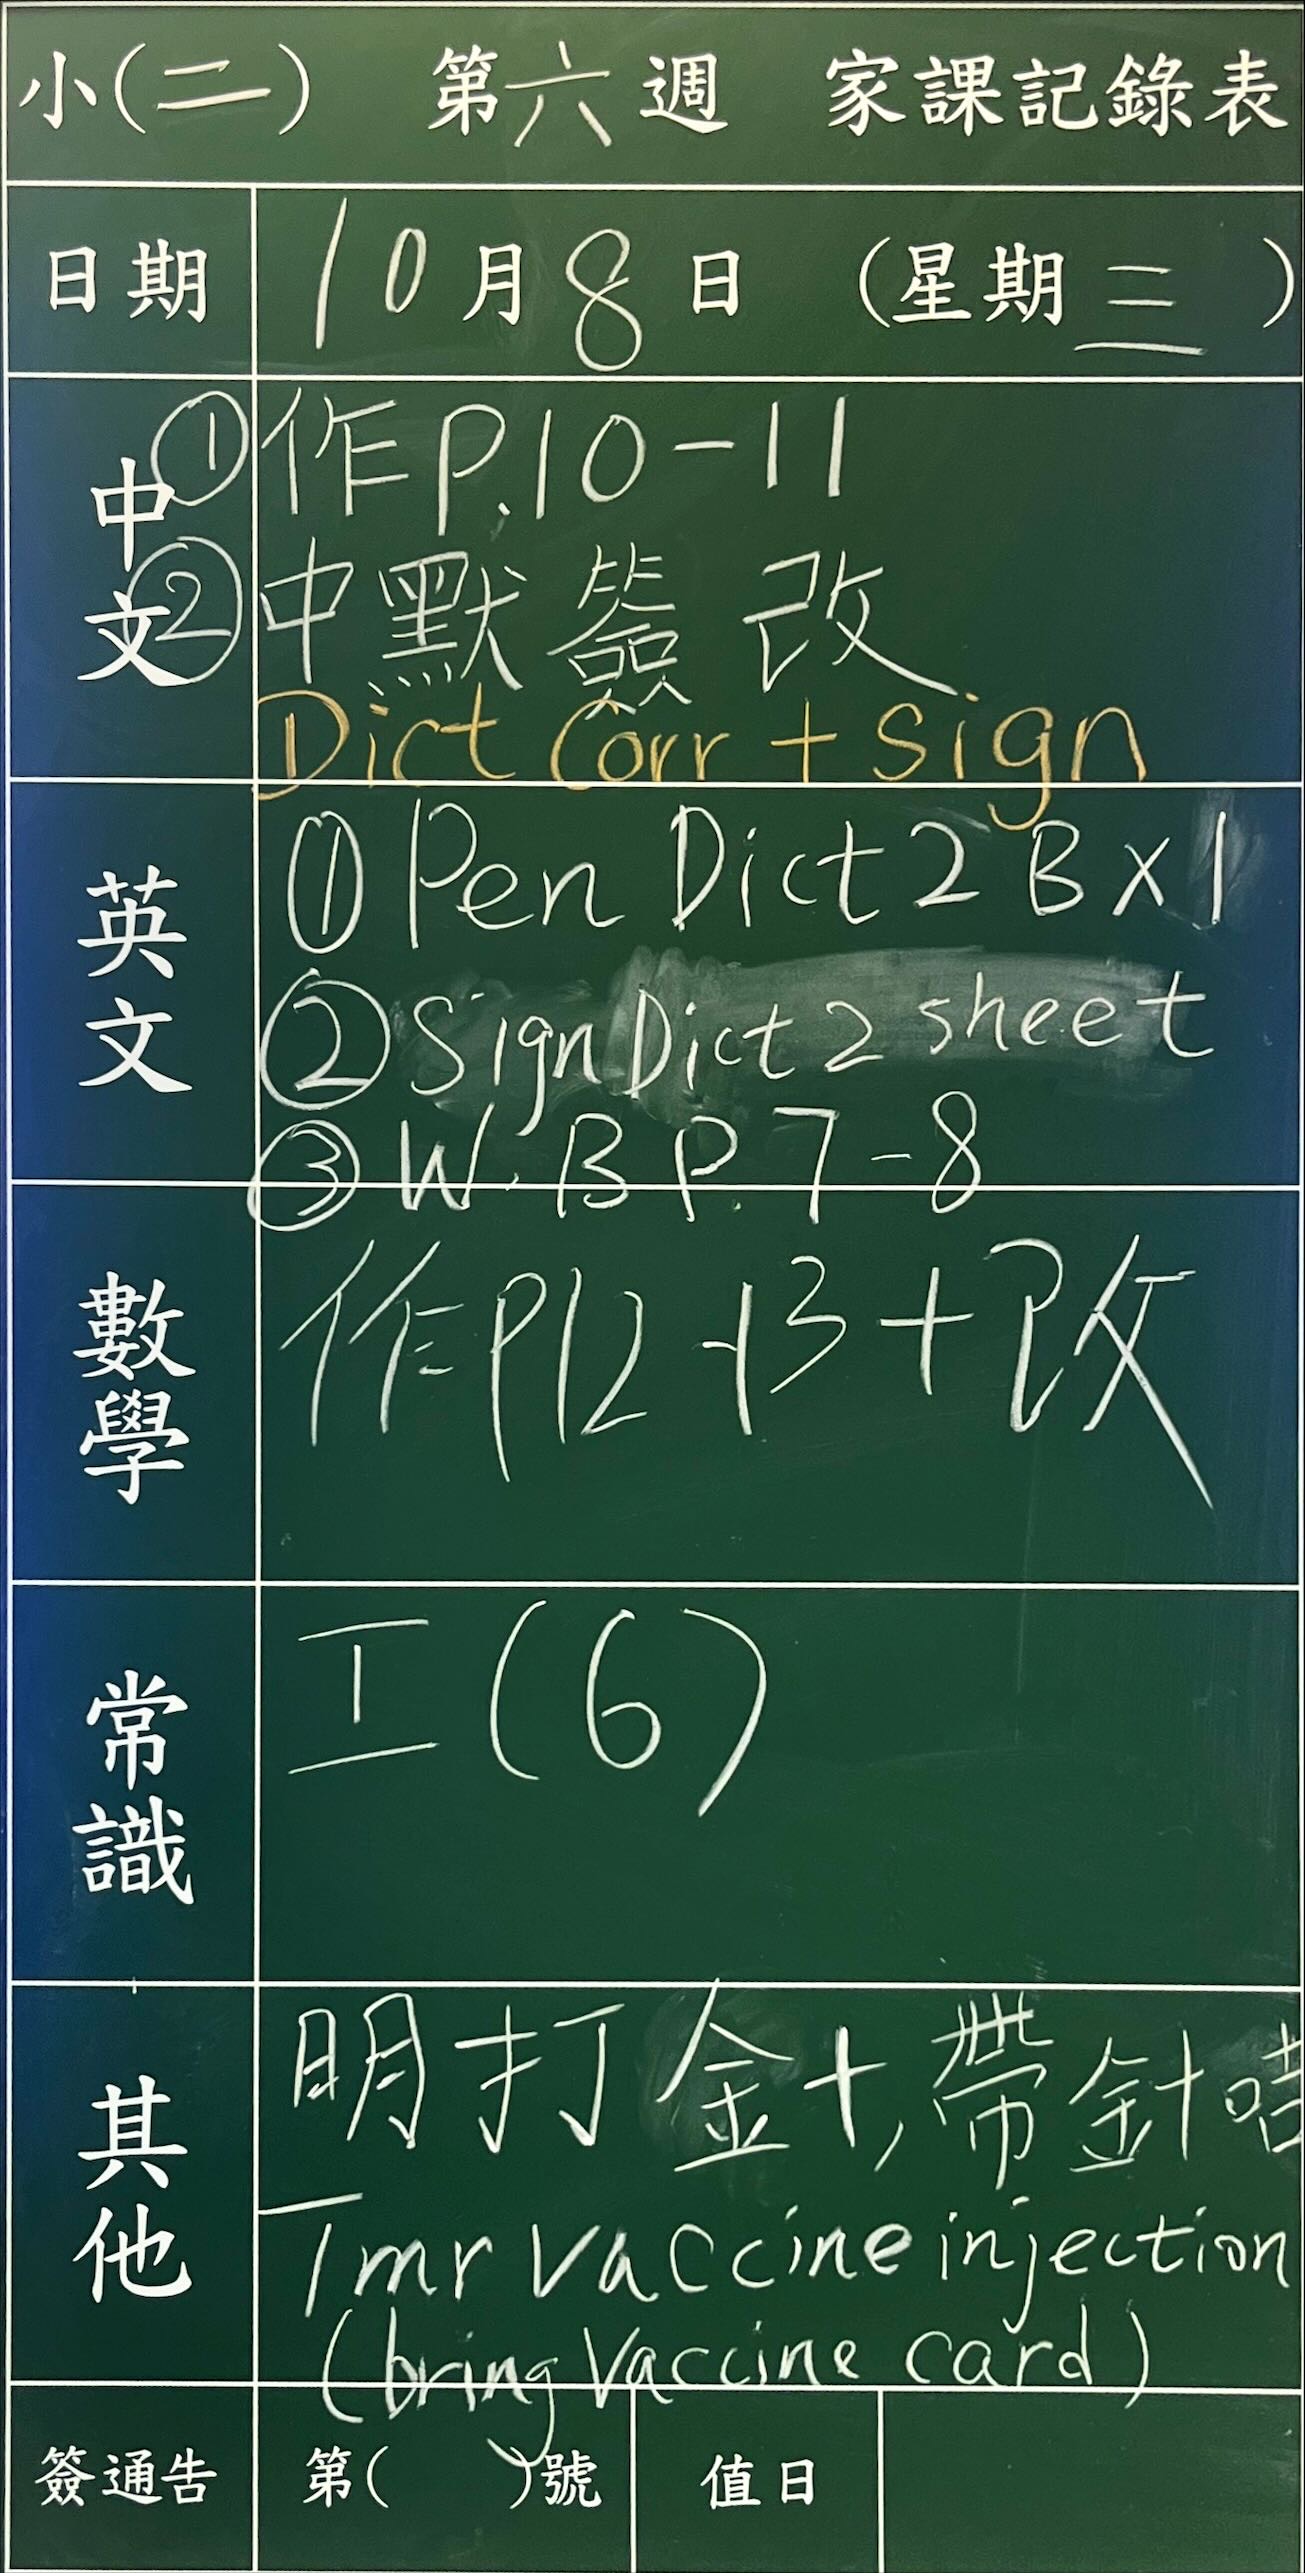 小(二) 第六週 家課記錄表
日期 10月8日 (星期三)
中文
①作P.10-11
②中默簽改
Dict Corr + sign
英文
①Pen Dict 2 B x 1
②Sign Dict 2 sheet
③W.B P.7-8
數學
作P12-13+改
常識
工(6)
其他
明打針,帶針咭
Tmr vaccine injection
(bring Vaccine card)
簽通告 第( )號 值日